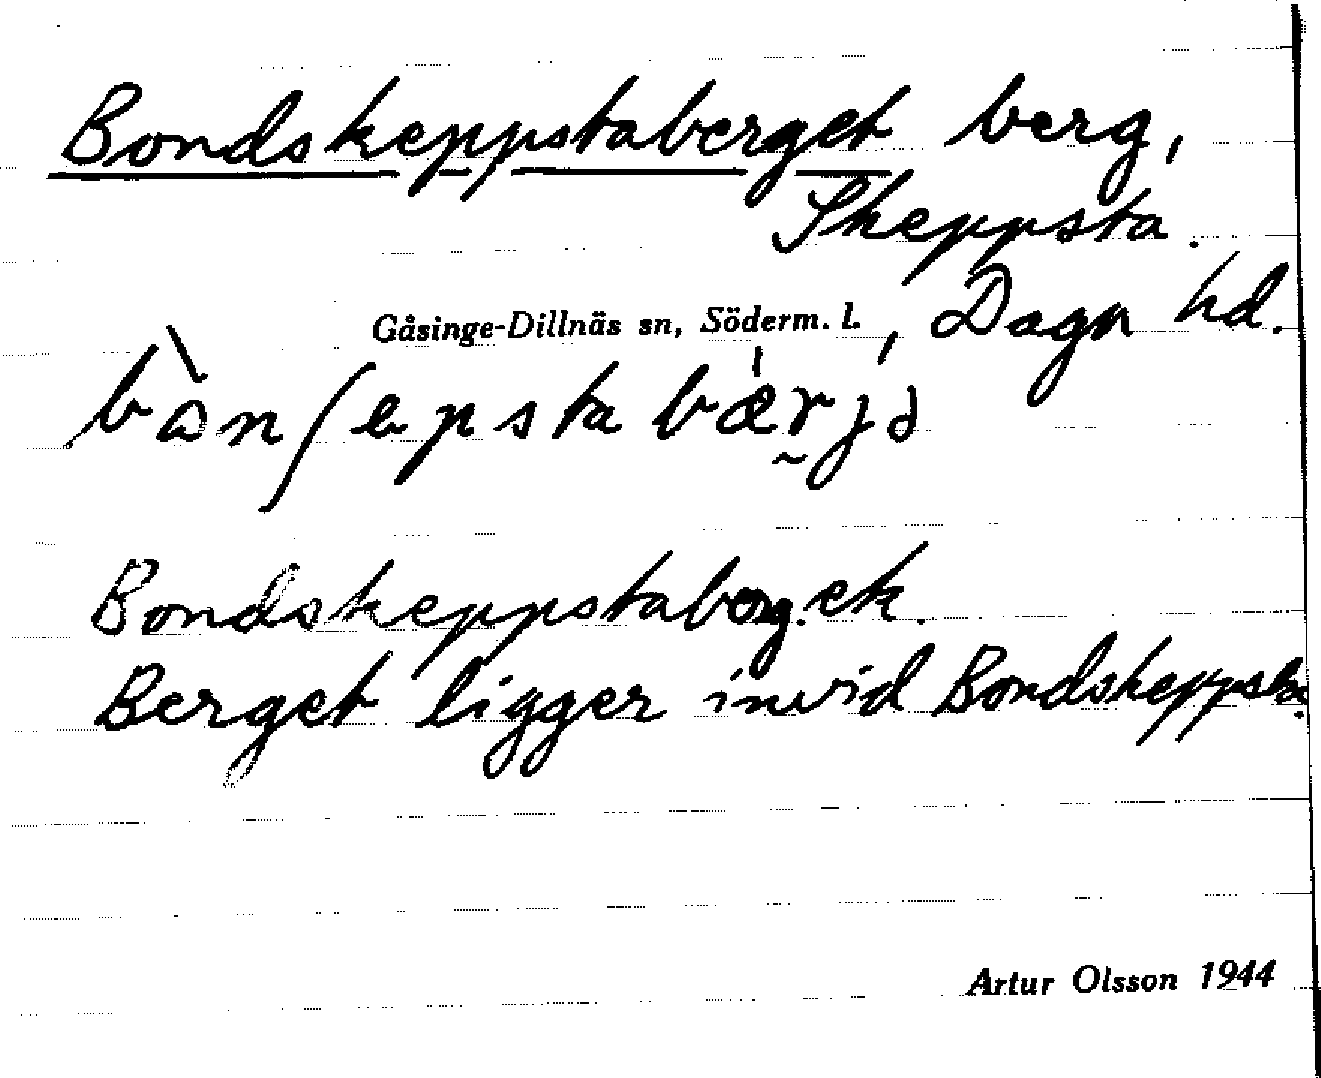 Bondskeppstaberget berg,
Skeppsta.
Gåsinge-Dillnäs sn, Söderm. l., Daga hd.
Bondskeppstaberget.
Berget ligger invid Bondskeppsta.
Artur Olsson 1944